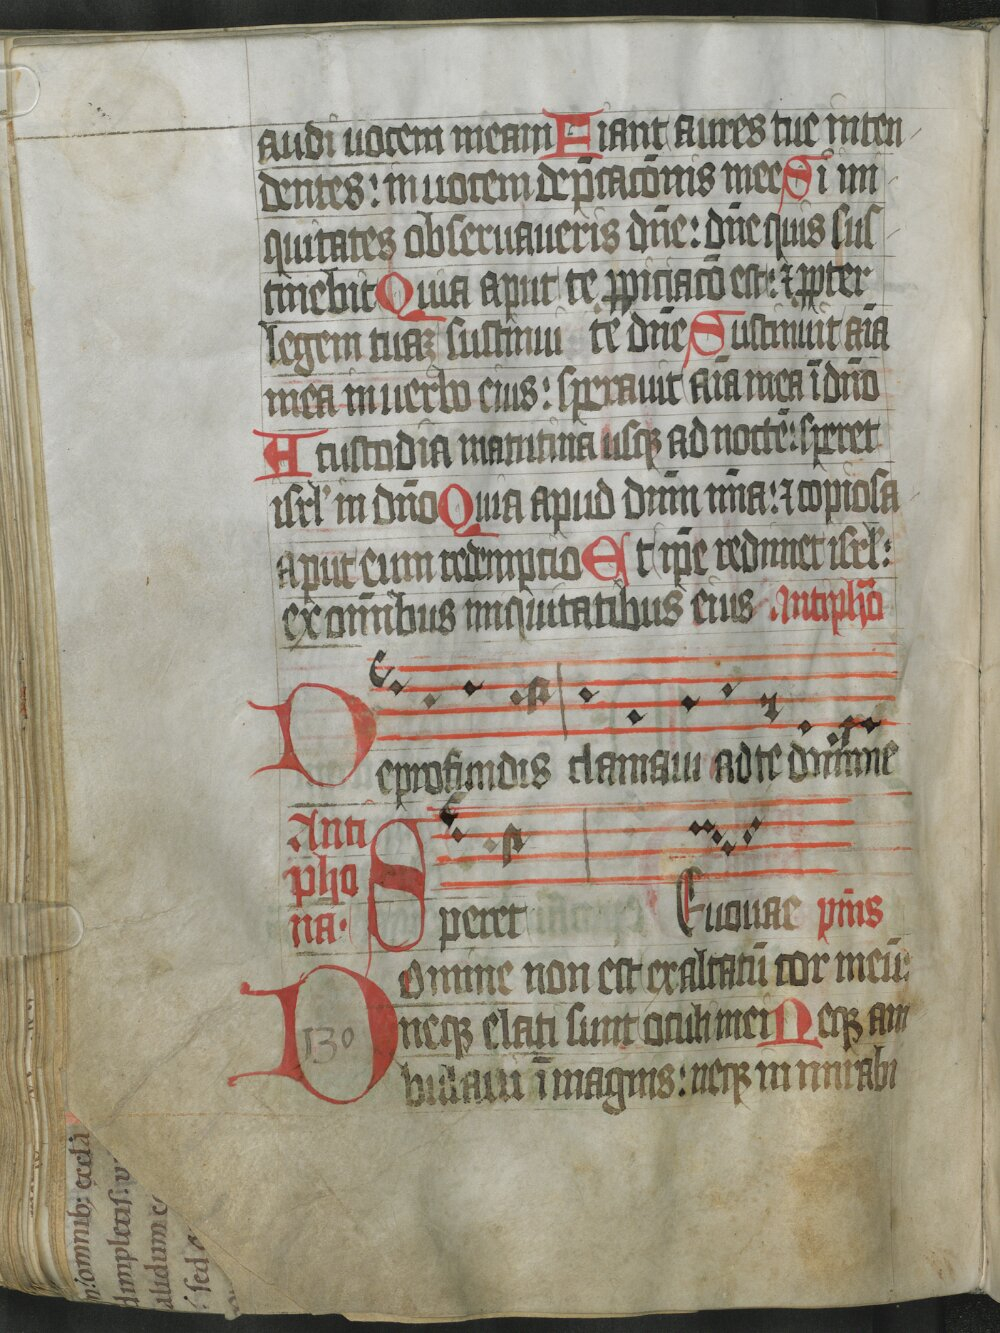 audi uocem meam Fiant aures tue inten
dentes: in uocem dep̄cac̄onis mee Si ini
quitates obseruaueris dn̄e: dn̄e quis sus
tinebit Quia aput te ꝓpiciac̄o est: ⁊ ꝓpter
legem tuaꝫ sustinui te dn̄e Sustinuit aīa
mea in uerbo eius: sperauit aīa mea ī dn̄o
A custodia matutina usqꝫ ad noctē: speret
isrl' in dn̄o Quia apud dn̄m mīa: ⁊ copiosa
aput eum redempcio Et ip̄e redimet isrl':
ex om̄ibus iniquitatibus eius Antiph̄a
De profundis clamaui ad te domine
Anti
pho
na·
Speret Euouae pm̄s
Domine non est exaltatū cor meū:
neqꝫ elati sunt oculi mei Neqꝫ am
130
bulaui ī magnis: neqꝫ in mirabi
omnibꝫ eccl̄a